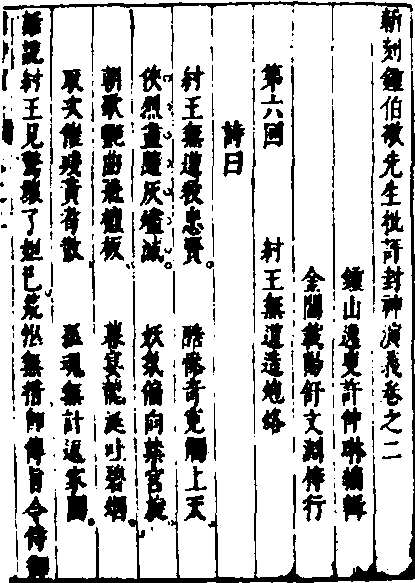 新刻鍾伯敬先生批評封神演義卷之二
鍾山逸叟許仲琳編輯
金閶載陽舒文淵梓行
第六回 紂王無道造炮烙
詩曰
紂王無道殺忠賢 酷慘奇冤觸上天
俠烈盡隨灰燼滅 妖氛偏向禁宮旋
朝歌艷曲飛檀板 暮宴龍涎吐碧烟
取次催殘黃耇散 孤魂無計返家園
話說紂王見驚壞了妲己慌忙無措卽傳旨令侍御